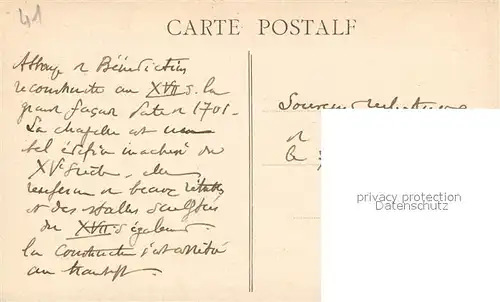 41
CARTE POSTALE
Abbaye de Bénédictins
reconstruite au XVII s. la
grande façade date de 1701.
La chapelle est un
bel édifice inachevé du
XVe siècle. Elle
renferme de beaux retables
et des stalles sculptées
du XVII s également.
la construction s'est arrêtée
au transept.
Souvenir
le
privacy protection
Datenschutz